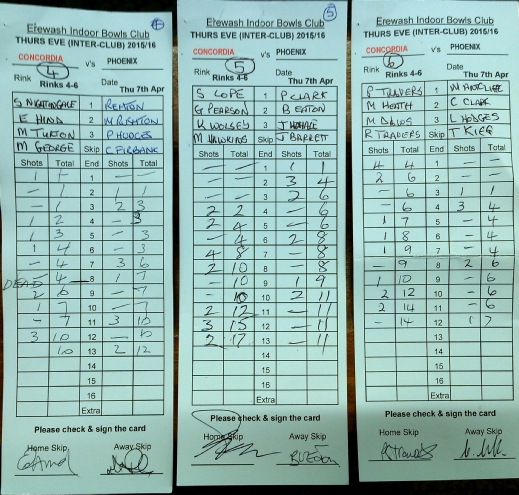 Erewash Indoor Bowls Club
THURS EVE (INTER-CLUB) 2015/16
CONCORDIA v's PHOENIX
4
Rink Rinks 4-6 Date Thu 7th Apr
S NIGHTINGALE 1 RENTON
E HIND 2 W RENTON
M TURTON 3 P HUDGES
M GEORGE Skip C FIRBANK
Shots Total End Shots Total
1 1 1 - -
- 1 2 1 1
- 1 3 2 3
1 2 4 - 3
1 3 5 - 3
1 4 6 - 3
- 4 7 3 6
DEAD - 4 8 1 7
2 6 9 - 7
1 7 10 - 7
- 7 11 3 10
3 10 12 - 10
10 13 2 12
14
15
16
Extra
Please check & sign the card
Home Skip Away Skip
5
Erewash Indoor Bowls Club
THURS EVE (INTER-CLUB) 2015/16
CONCORDIA v's PHOENIX
5
Rink Rinks 4-6 Date Thu 7th Apr
S COPE 1 P CLARK
G PEARSON 2 B EATON
K WOLSEY 3
M HAWKINS Skip J BARRETT
Shots Total End Shots Total
- - 1 1 1
- - 2 3 4
- - 3 2 6
2 2 4 - 6
2 4 5 - 6
- 4 6 2 8
4 8 7 - 8
2 10 8 - 8
- 10 9 1 9
- 10 10 2 11
2 12 11 - 11
3 15 12 - 11
2 17 13 - 11
14
15
16
Extra
Please check & sign the card
Home Skip Away Skip
Erewash Indoor Bowls Club
THURS EVE (INTER-CLUB) 2015/16
CONCORDIA v's PHOENIX
6
Rink Rinks 4-6 Date Thu 7th Apr
P TRADERS 1
M HEATH 2 C CLARK
M DAWS 3 L HODGES
R TRADERS Skip T KIRK
Shots Total End Shots Total
4 4 1 - -
2 6 2 - -
- 6 3 1 1
- 6 4 3 4
1 7 5 - 4
1 8 6 - 4
1 9 7 - 4
- 9 8 2 6
1 10 9 - 6
2 12 10 - 6
2 14 11 - 6
- 14 12 1 7
13
14
15
16
Extra
Please check & sign the card
Home Skip Away Skip